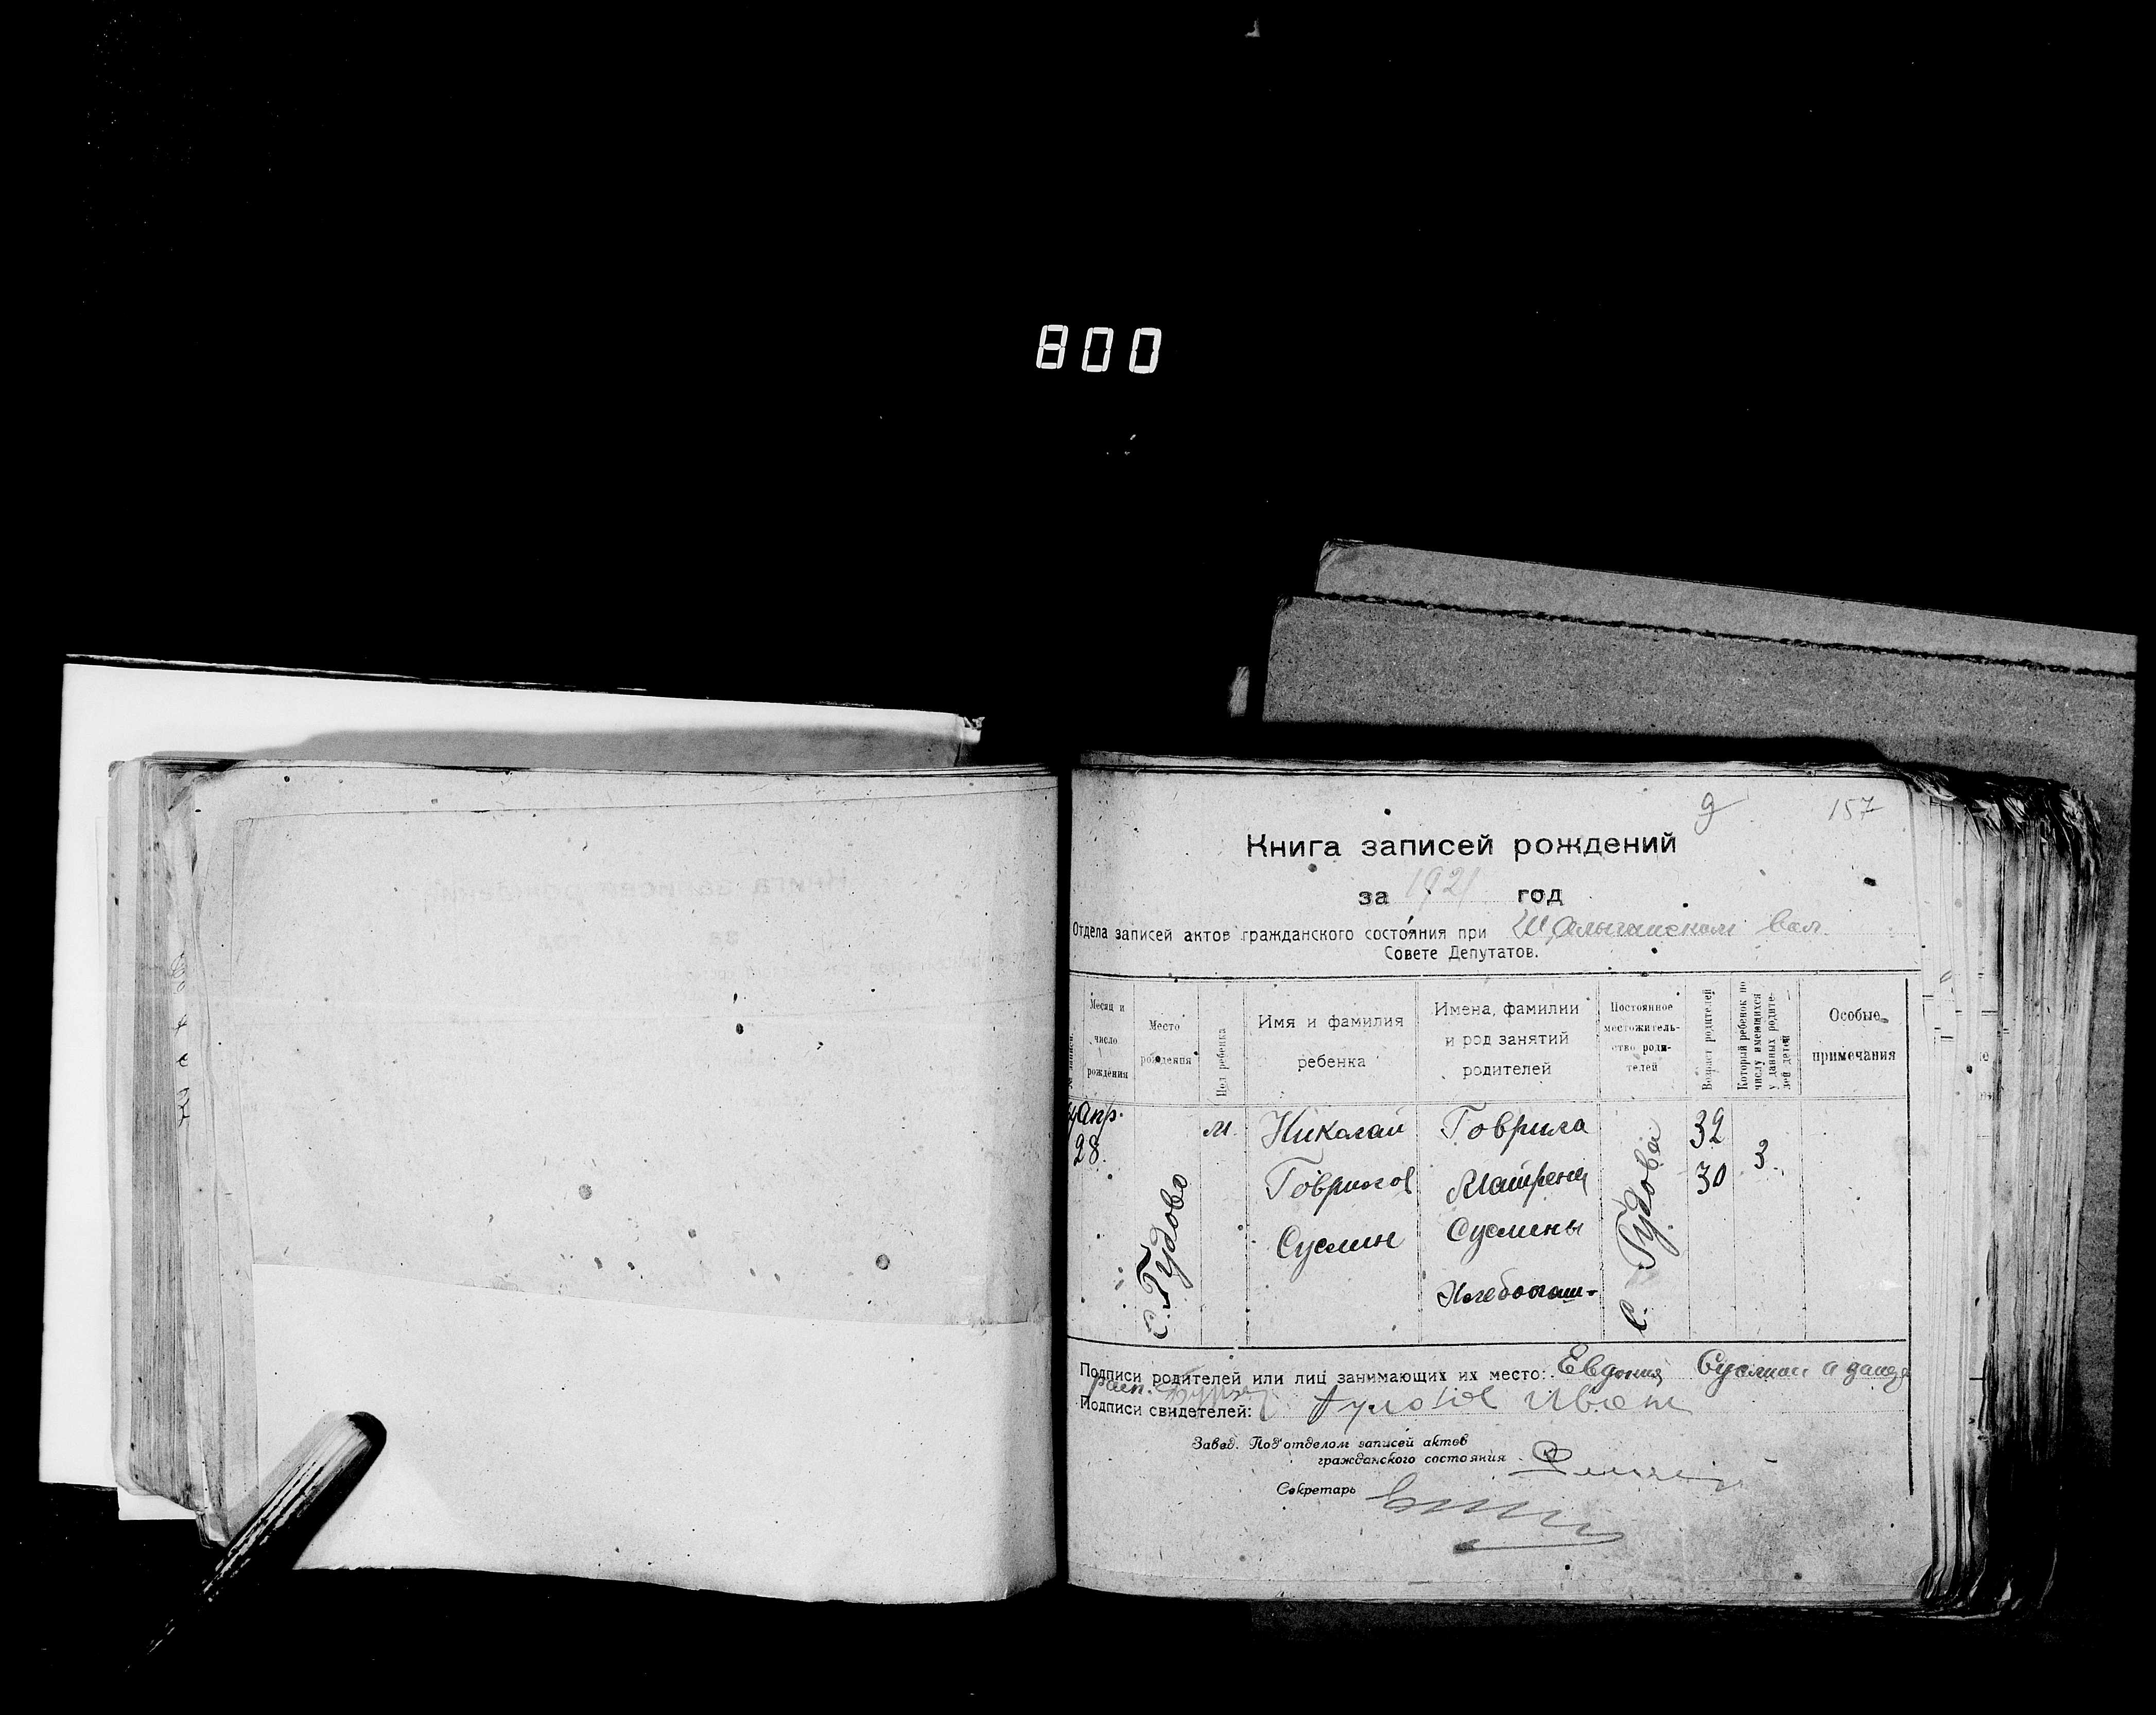 800
9 157
Книга записей рождений
за 1921 год
Отдела записей актов гражданского состояния при вол.
Совете Депутатов.
№ записи.
Месяц и число рождения
Место рождения
Пол ребенка
Имя и фамилия ребенка
Имена, фамилии и род занятий родителей
Постоянное местожитель-ство роди-телей
Возраст родителей
Который ребенок по числу имеющихся у данных родите-лей детей
Особые примечания
Апр. 28.
с. Гудово
м.
Николай
Говрилов
Суслин
Говрила
Матрена
Суслины
Хлебопаш-
с. Гудова
32
30
3.
Подписи родителей или лиц занимающих их место: Евдокия
Подписи свидетелей: Иван
Завед. Под'отделом записей актов
гражданского состояния
Секретарь